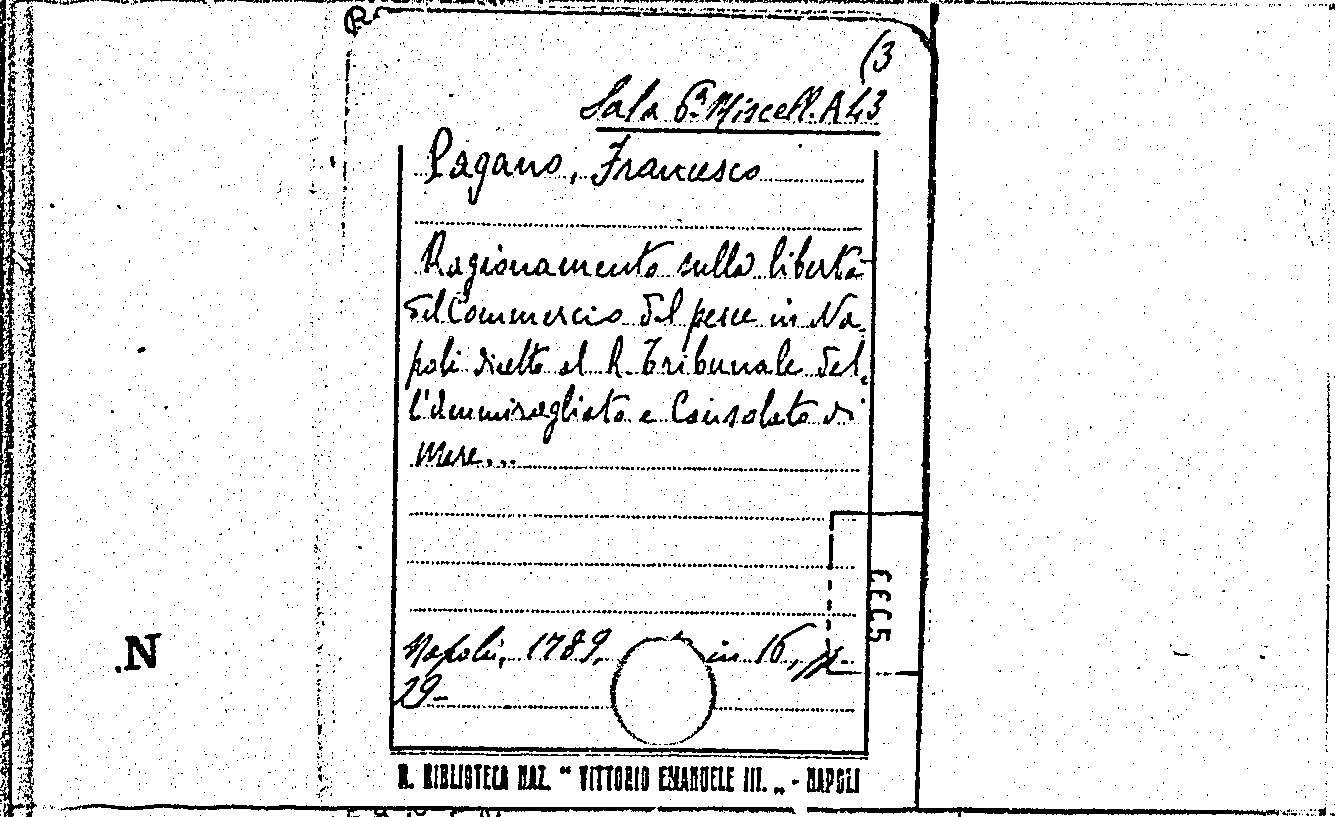 (3
Sala 6ª Miscell. A 43
Pagano, Francesco
Ragionamento sulla libertà
del Commercio del pesce in Na-
poli diretto al R. Tribunale del-
l'Ammiragliato e Consolato di
mare...
Napoli, 1789, in 16, pp.
29-
R. BIBLIOTECA NAZ. "VITTORIO EMANUELE III." - NAPOLI
N